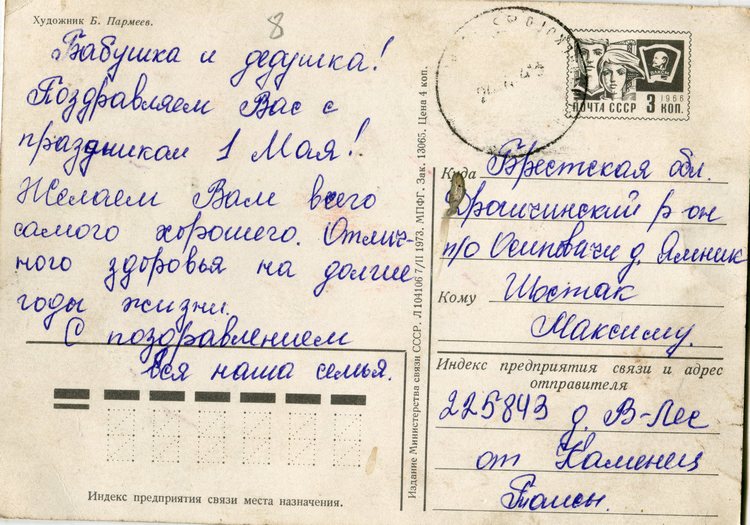 Художник Б. Пармеев.
8
Бабушка и дедушка!
Поздравляем Вас с
праздником 1 Мая!
Желаем Вам всего
самого хорошего. Отлич-
ного здоровья на долгие
годы жизни.
С поздравлением
вся наша семья.
Индекс предприятия связи места назначения.
Издание Министерства связи СССР. Л 104106 7/II 1973. МПФГ. Зак. 13065. Цена 4 коп.
ПОЧТА СССР
1966
3 КОП.
Куда Брестская обл.
Дрогичинский р-он
п/о Осиповичи д. Ямник
Кому Шостак
Максиму.
Индекс предприятия связи и адрес
отправителя
225843 д. В-Лес
от Каменец
Таисы.